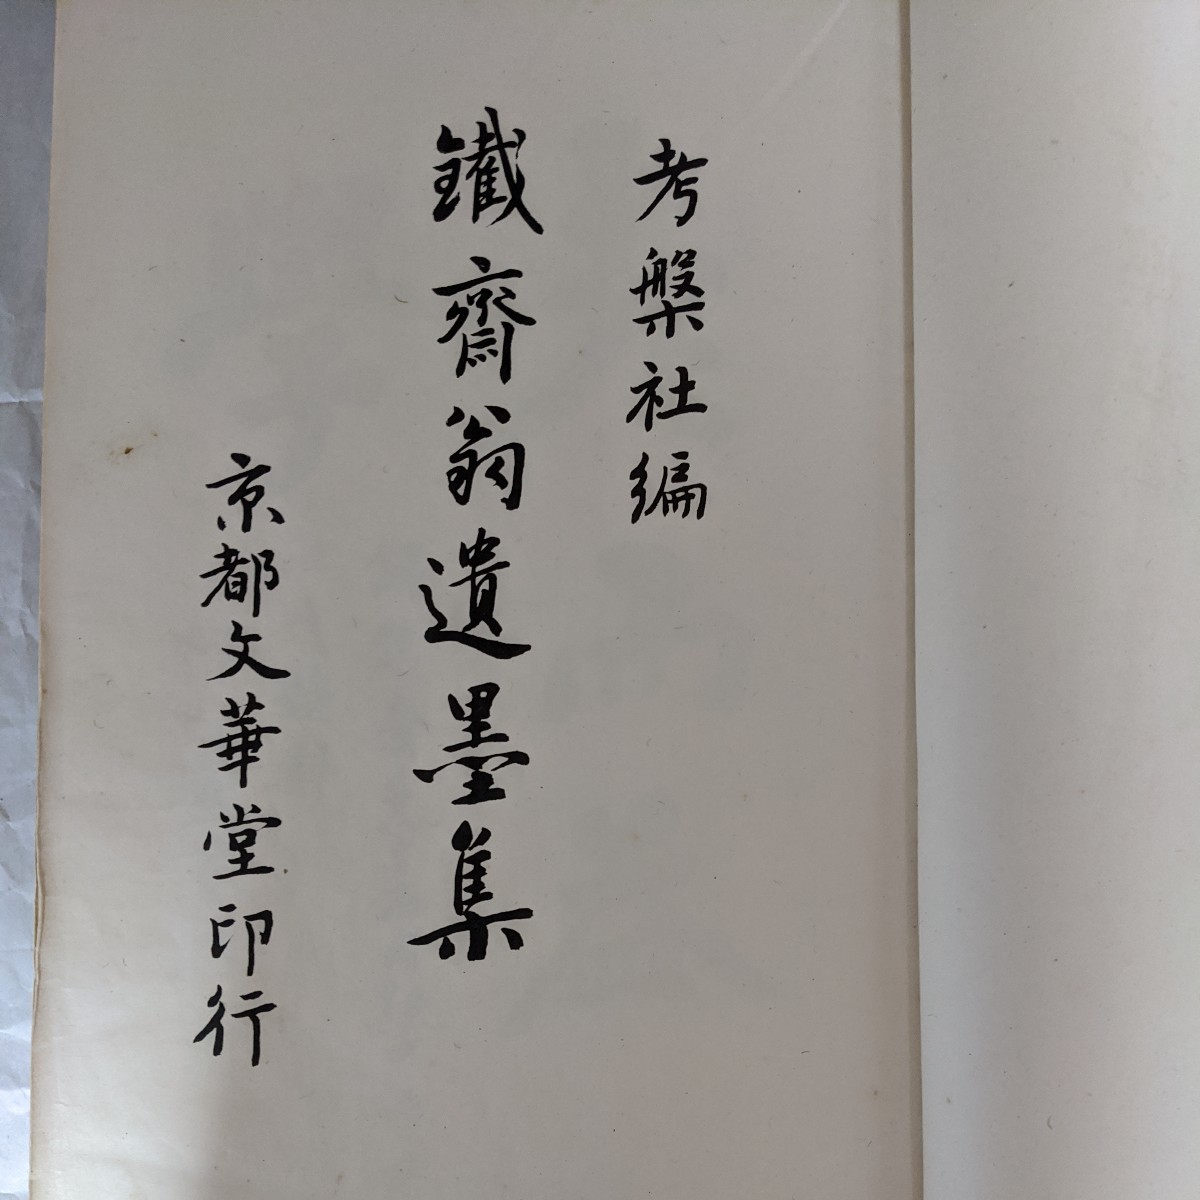 考槃社編
鐵齋翁遺墨集
京都文華堂印行